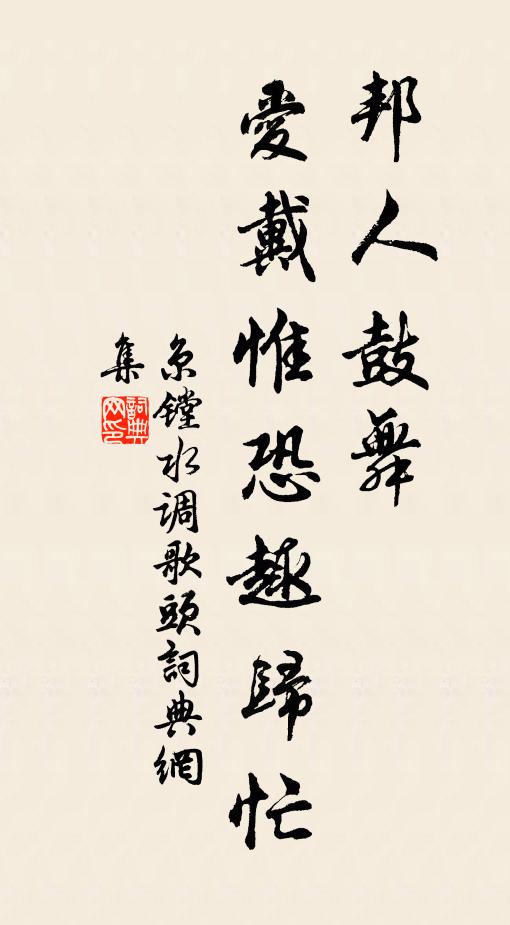 邦人鼓舞
愛戴惟恐趣歸忙
京鏜水调歌頭詞典網
集
詞典
网印